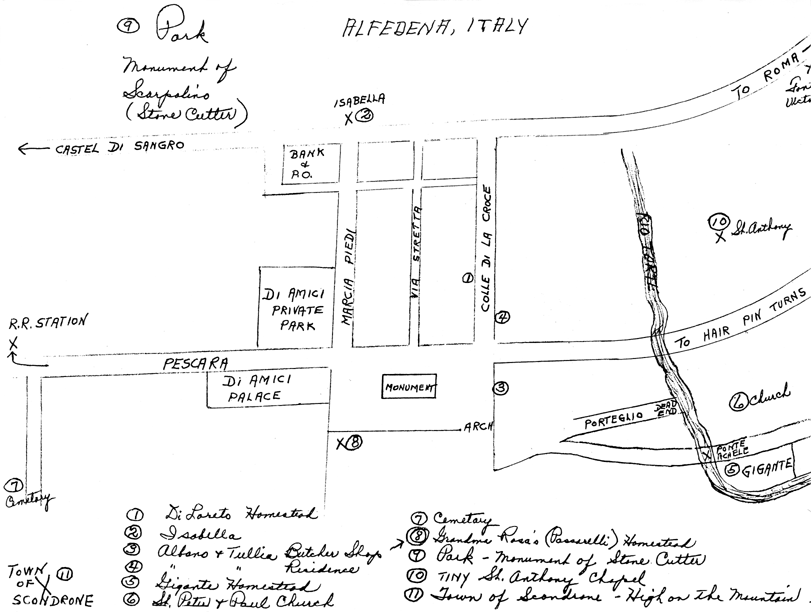 ⑨ Park
ALFEDENA, ITALY
Monument of
Scarpolino
(Stone Cutter)
TO ROMA
ISABELLA
X ②
← CASTEL DI SANGRO
BANK
&
P.O.
MARCIA PIEDI
VIA STRETTA
COLLE DI LA CROCE
①
④
RIO TORTO
⑩
X St. Anthony
DI AMICI
PRIVATE
PARK
R.R. STATION
X
PESCARA
TO HAIR PIN TURNS
DI AMICI
PALACE
MONUMENT
③
⑥ Church
PORTEGLIO
DEAD
END
ARCH
X ⑧
X PONTE
ACHELE
⑤ GIGANTE
⑦
Cemetary
① Di Loreto Homestead
② Isabella
③ Albano & Tullia Butcher Shop
④ " " Residence
⑤ Gigante Homestead
⑥ St. Peter & Paul Church
⑦ Cemetary
⑧ Grandma Rosa's (Passarelli) Homestead
⑨ Park - Monument of Stone Cutter
⑩ TINY St. Anthony Chapel
⑪ Town of Scondrone - High on the Mountain
TOWN
OF X ⑪
SCONDRONE